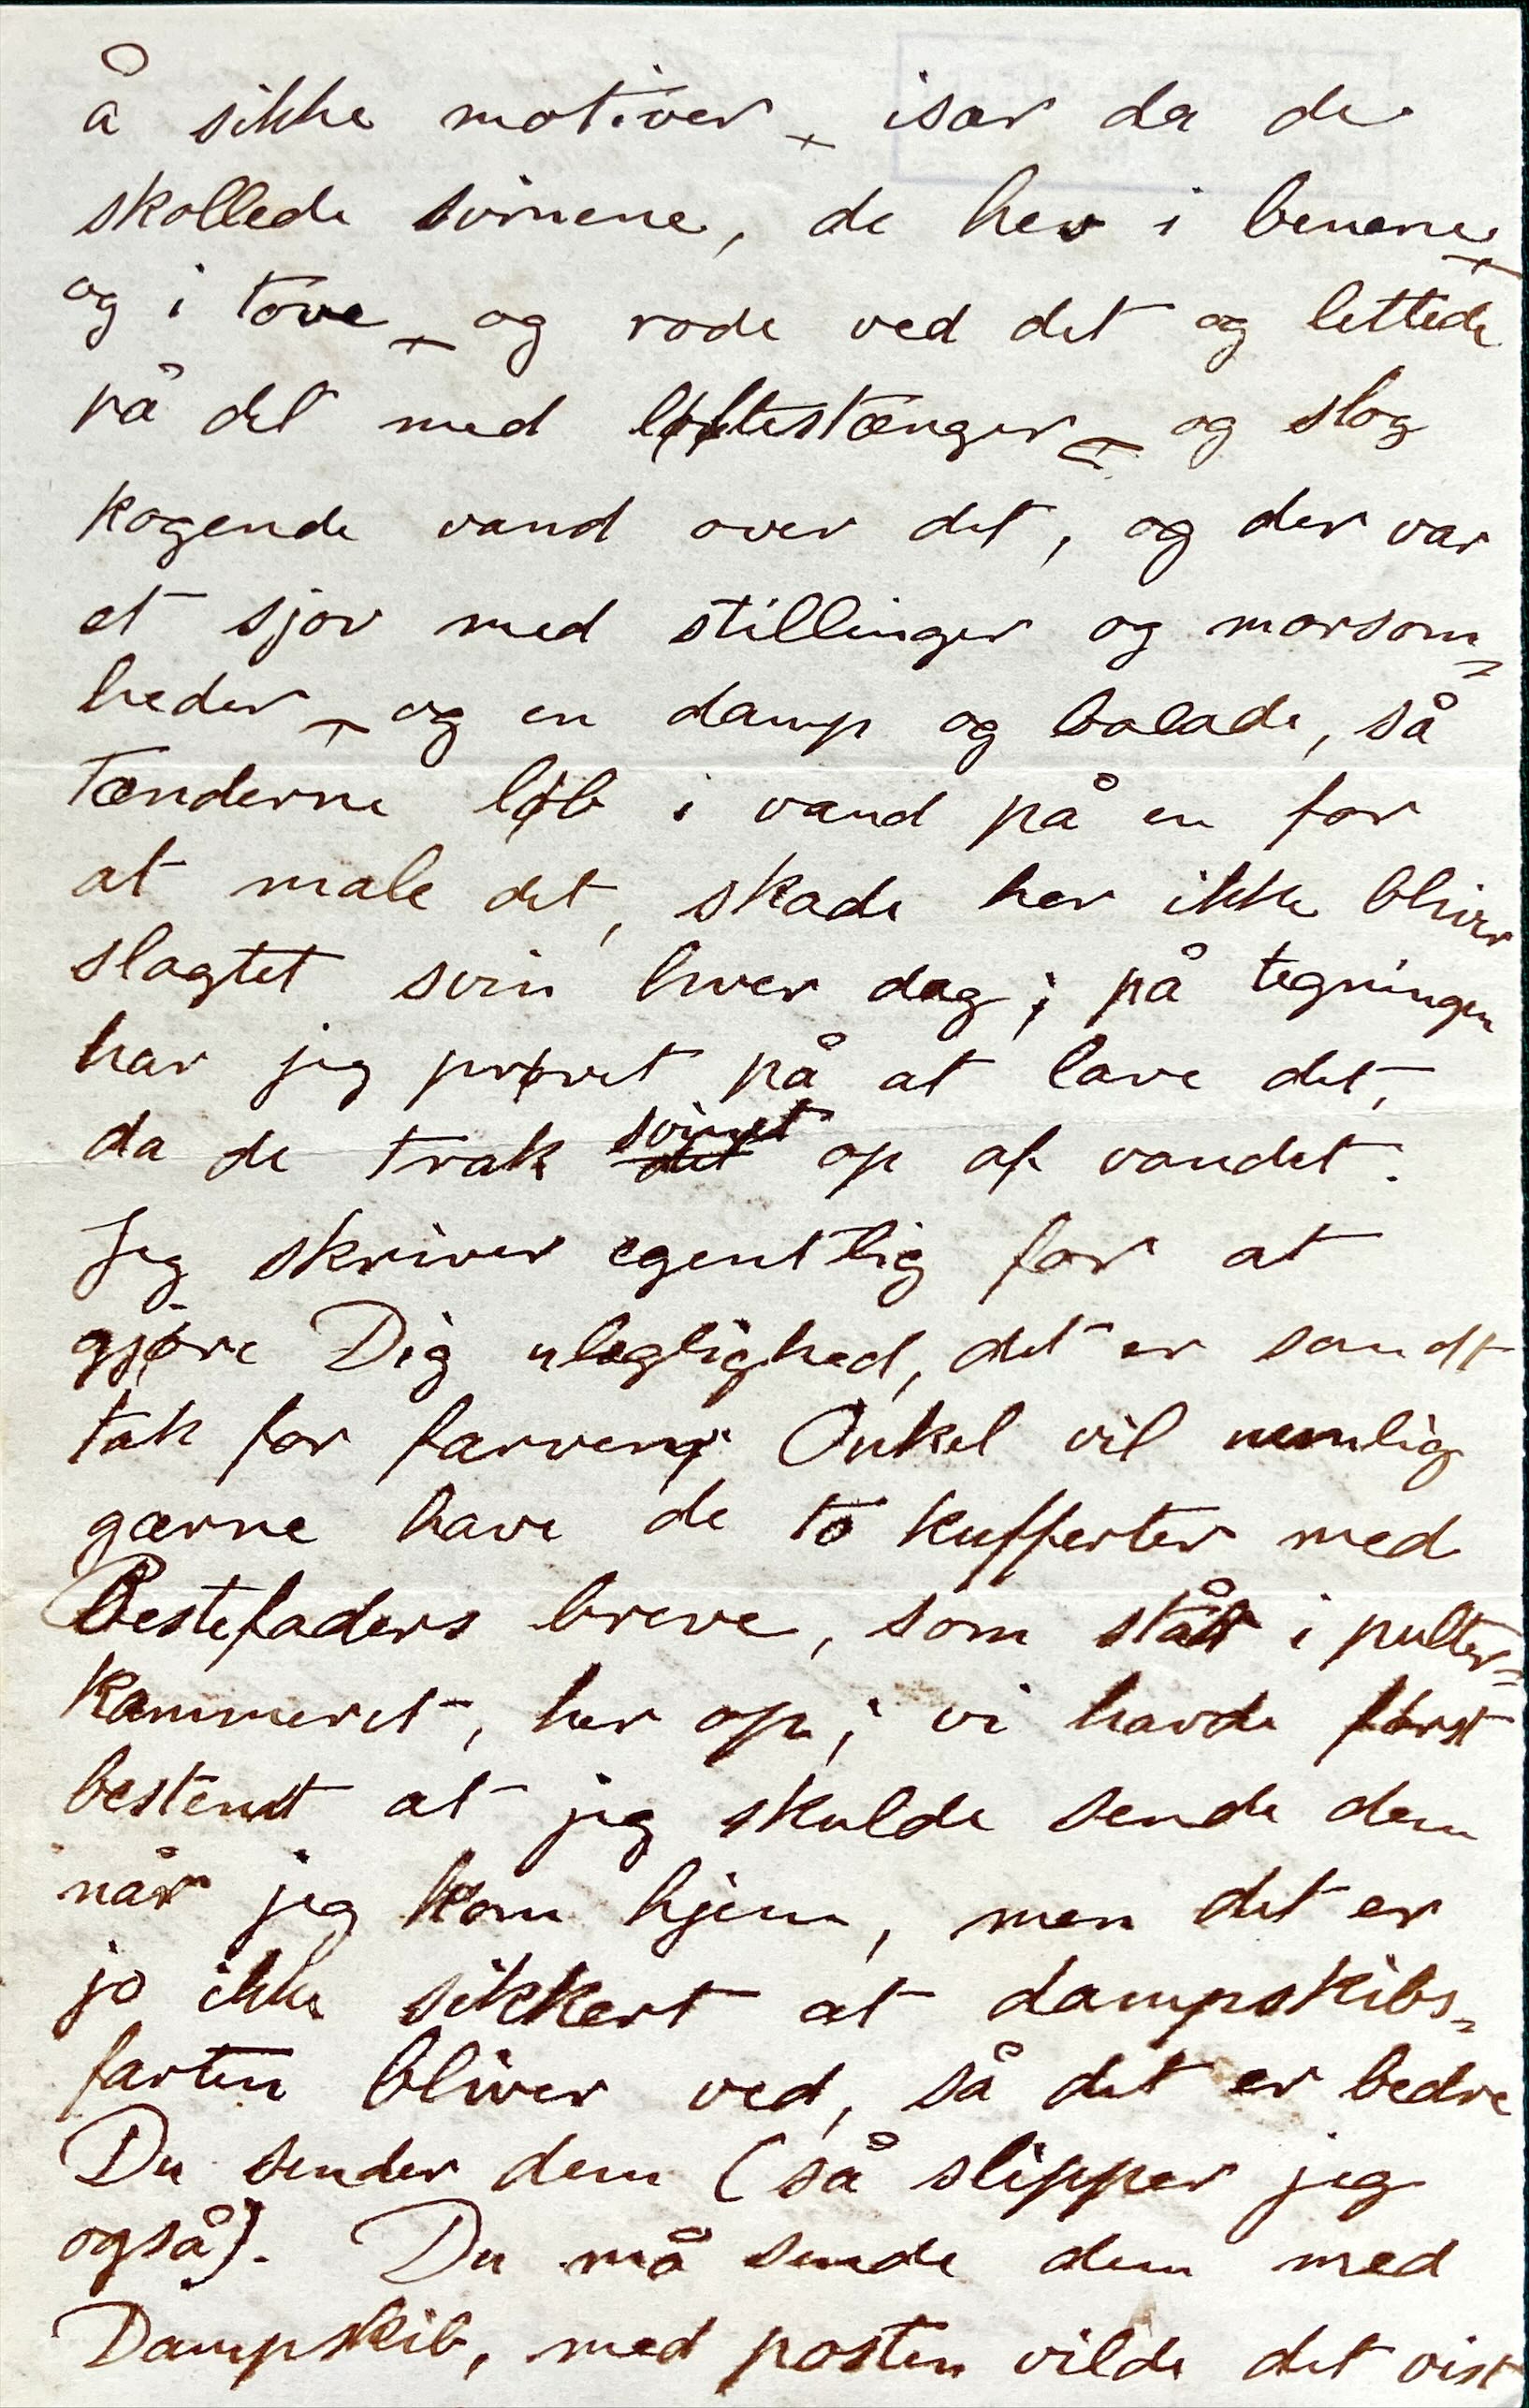 å sikke motiver – især da de
skollede svinene, de hev i benene –
og i tove – og rode ved det og lettede
på det med løftestænger – og slog
kogende vand over det, og der var
et sjov med stillinger og morsom=
heder – og en damp og balade, så
tænderne løb i vand på en for
at male det, skade her ikke bliver
slagtet svin hver dag; på tegningen
har jeg prøvet på at lave det,
da de trak svinet op af vandet.
Jeg skriver egentlig for at
gjøre Dig uleglighed, det er sandt
tak for farven; Onkel vil nemlig
gærne have de to kufferter med
Bestefaders breve, som står i pulter=
kammeret, her op; vi havde først
bestemt at jeg skulde sende dem
når jeg kom hjem, men det er
jo ikke sikkert at dampskibs=
farten bliver ved, så det er bedre
Du sender dem (så slipper jeg
også). Du må sende dem med
Dampskib, med posten vilde det vist